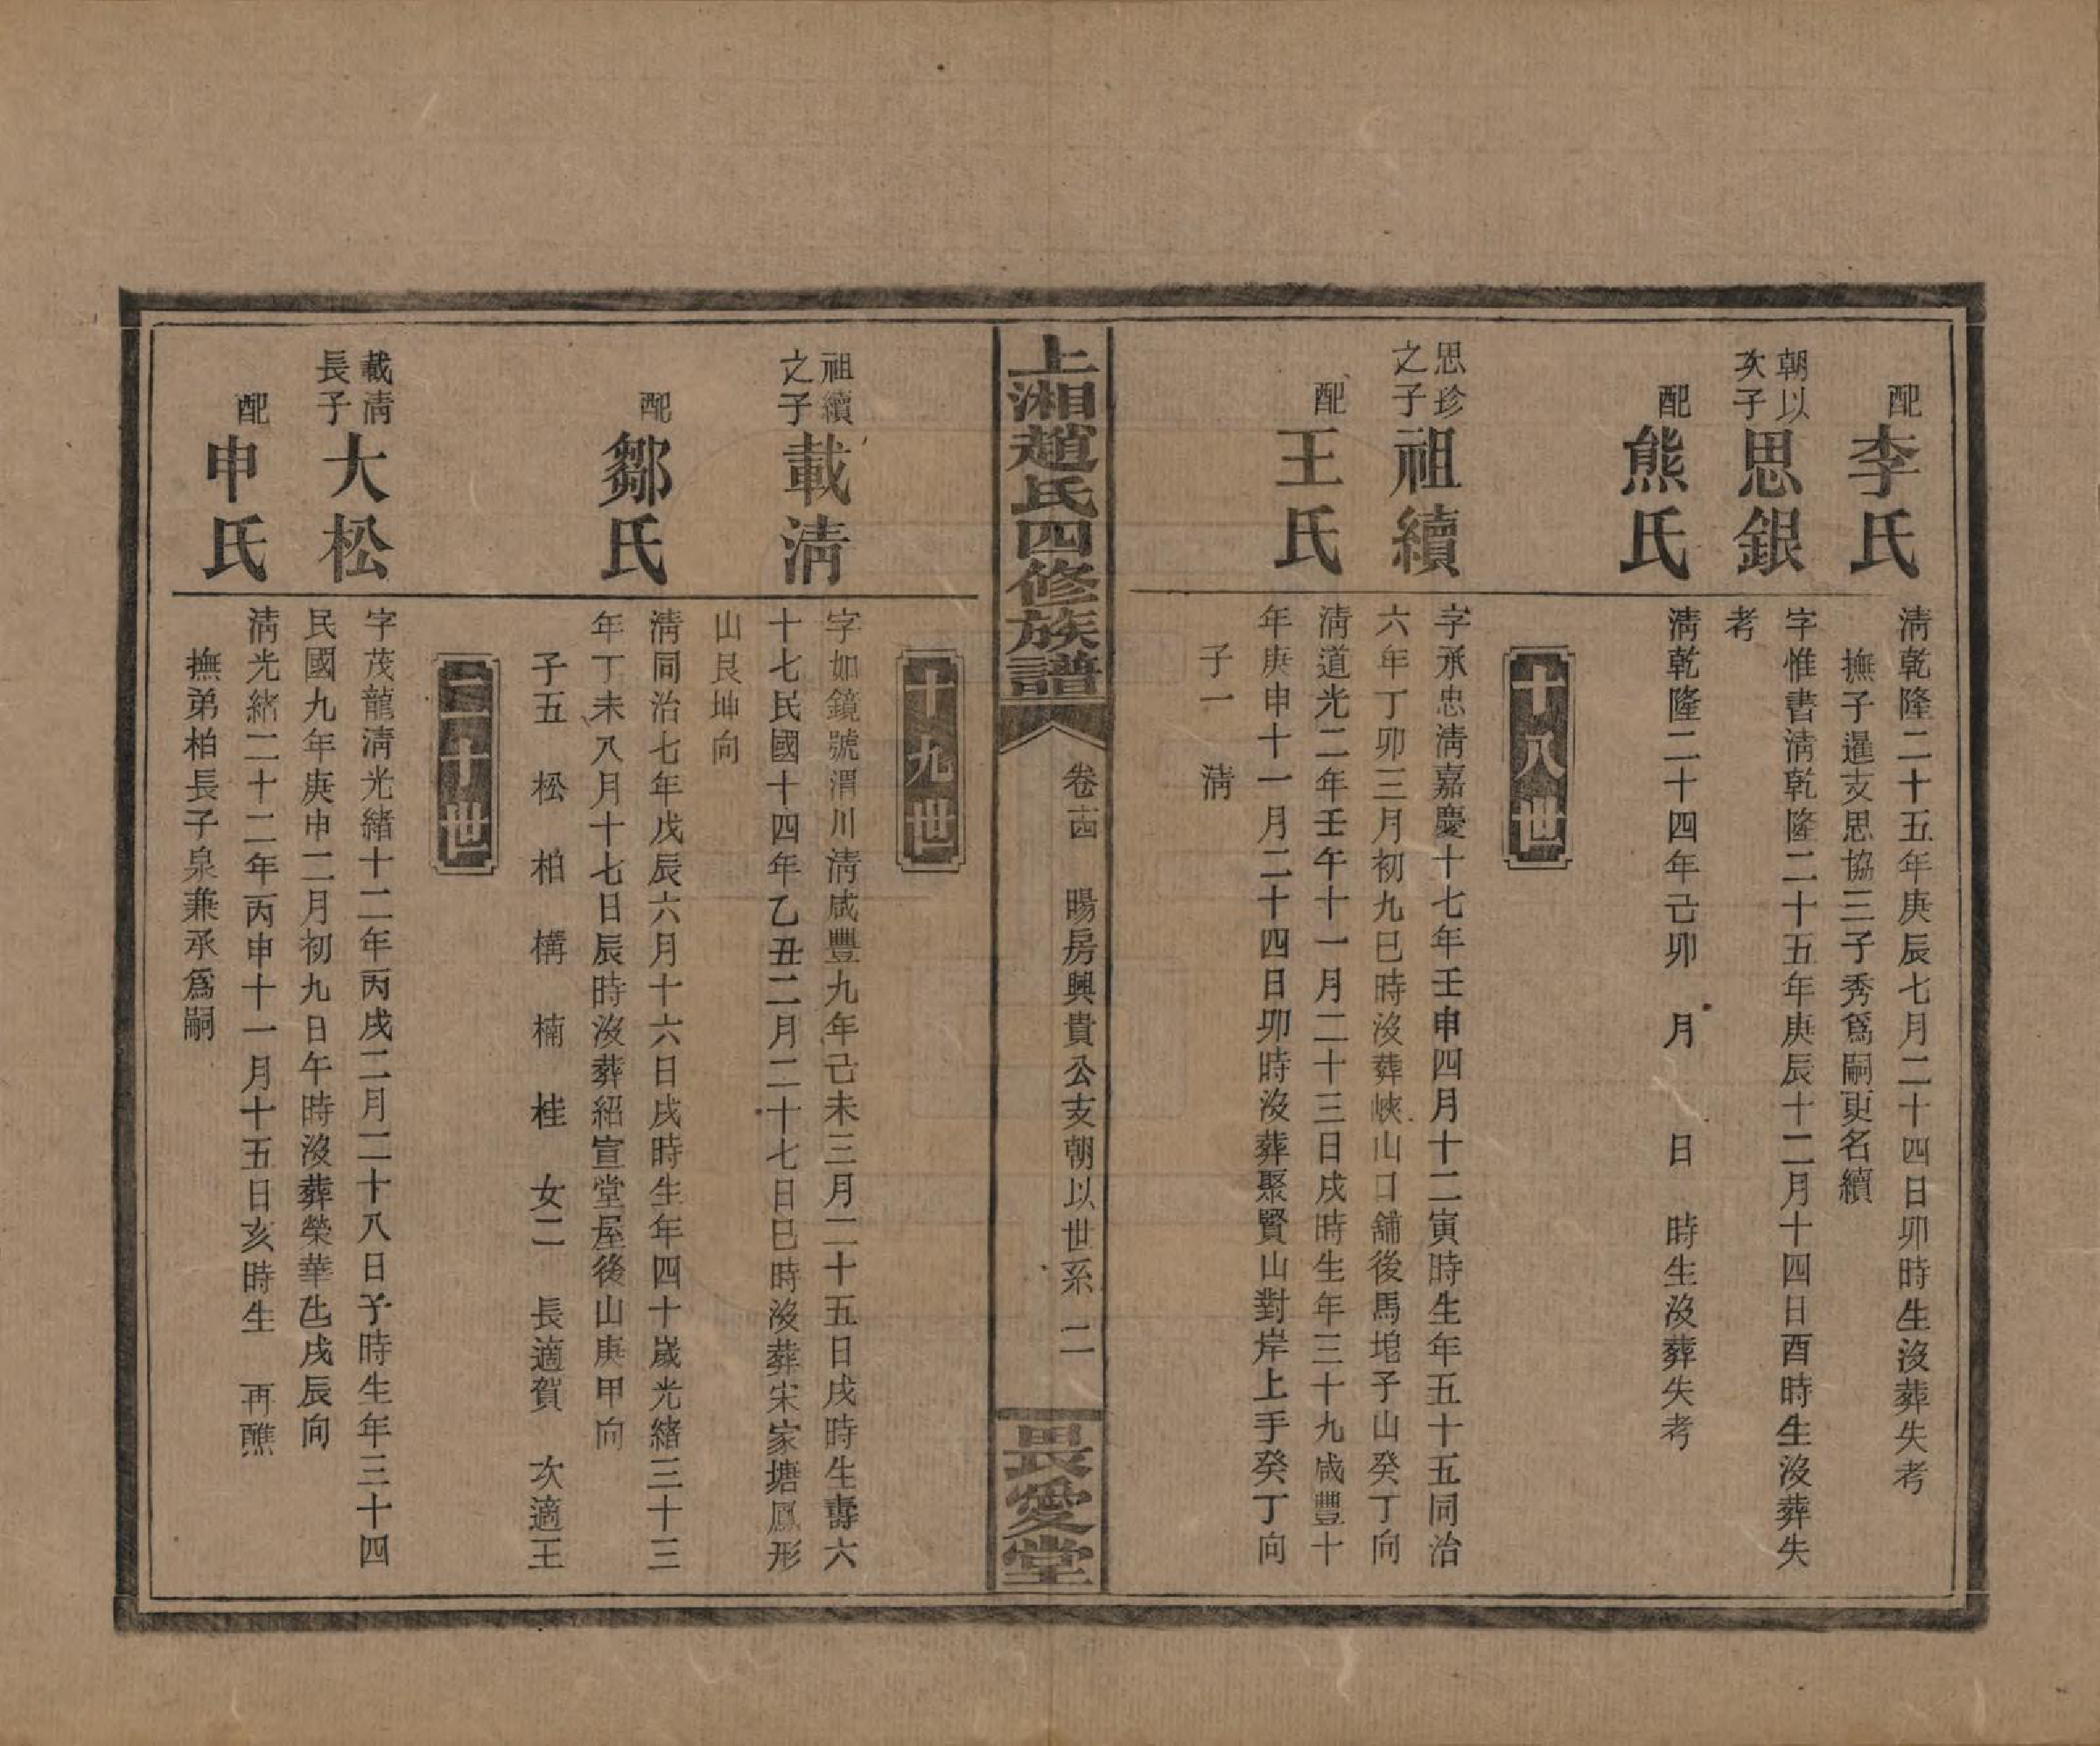 配
李氏
清乾隆二十五年庚辰七月二十四日卯時生沒葬失考
撫子暹支思協三子秀爲嗣更名續
朝以
次子
思銀
字惟書清乾隆二十五年庚辰十二月十四日酉時生沒葬失
考
配
熊氏
清乾隆二十四年己卯 月 日 時生沒葬失考
十八世
思珍
之子
祖續
字承忠清嘉慶十七年壬申四月十二寅時生年五十五同治
六年丁卯三月初九巳時沒葬峽山口舖後馬垉子山癸丁向
配
王氏
清道光二年壬午十一月二十三日戌時生年三十九咸豐十
年庚申十一月二十四日卯時沒葬聚賢山對岸上手癸丁向
子一 清
上湘趙氏四修族譜
卷十四 暘房興貴公支朝以世系 二
畏愛堂
十九世
祖續
之子
載清
字如鏡號渭川清咸豐九年己未三月二十五日戌時生壽六
十七民國十四年乙丑二月二十七日巳時沒葬宋家塘鳳形
山艮坤向
配
鄒氏
清同治七年戊辰六月十六日戌時生年四十歲光緒三十三
年丁未八月十七日辰時沒葬紹宣堂屋後山庚甲向
子五 松 柏 構 楠 桂 女二 長適賀 次適王
二十世
載清
長子
大松
字茂龍清光緒十二年丙戌二月二十八日子時生年三十四
民國九年庚申二月初九日午時沒葬榮華乜戌辰向
配
申氏
清光緒二十二年丙申十一月十五日亥時生 再醮
撫弟柏長子泉兼承爲嗣